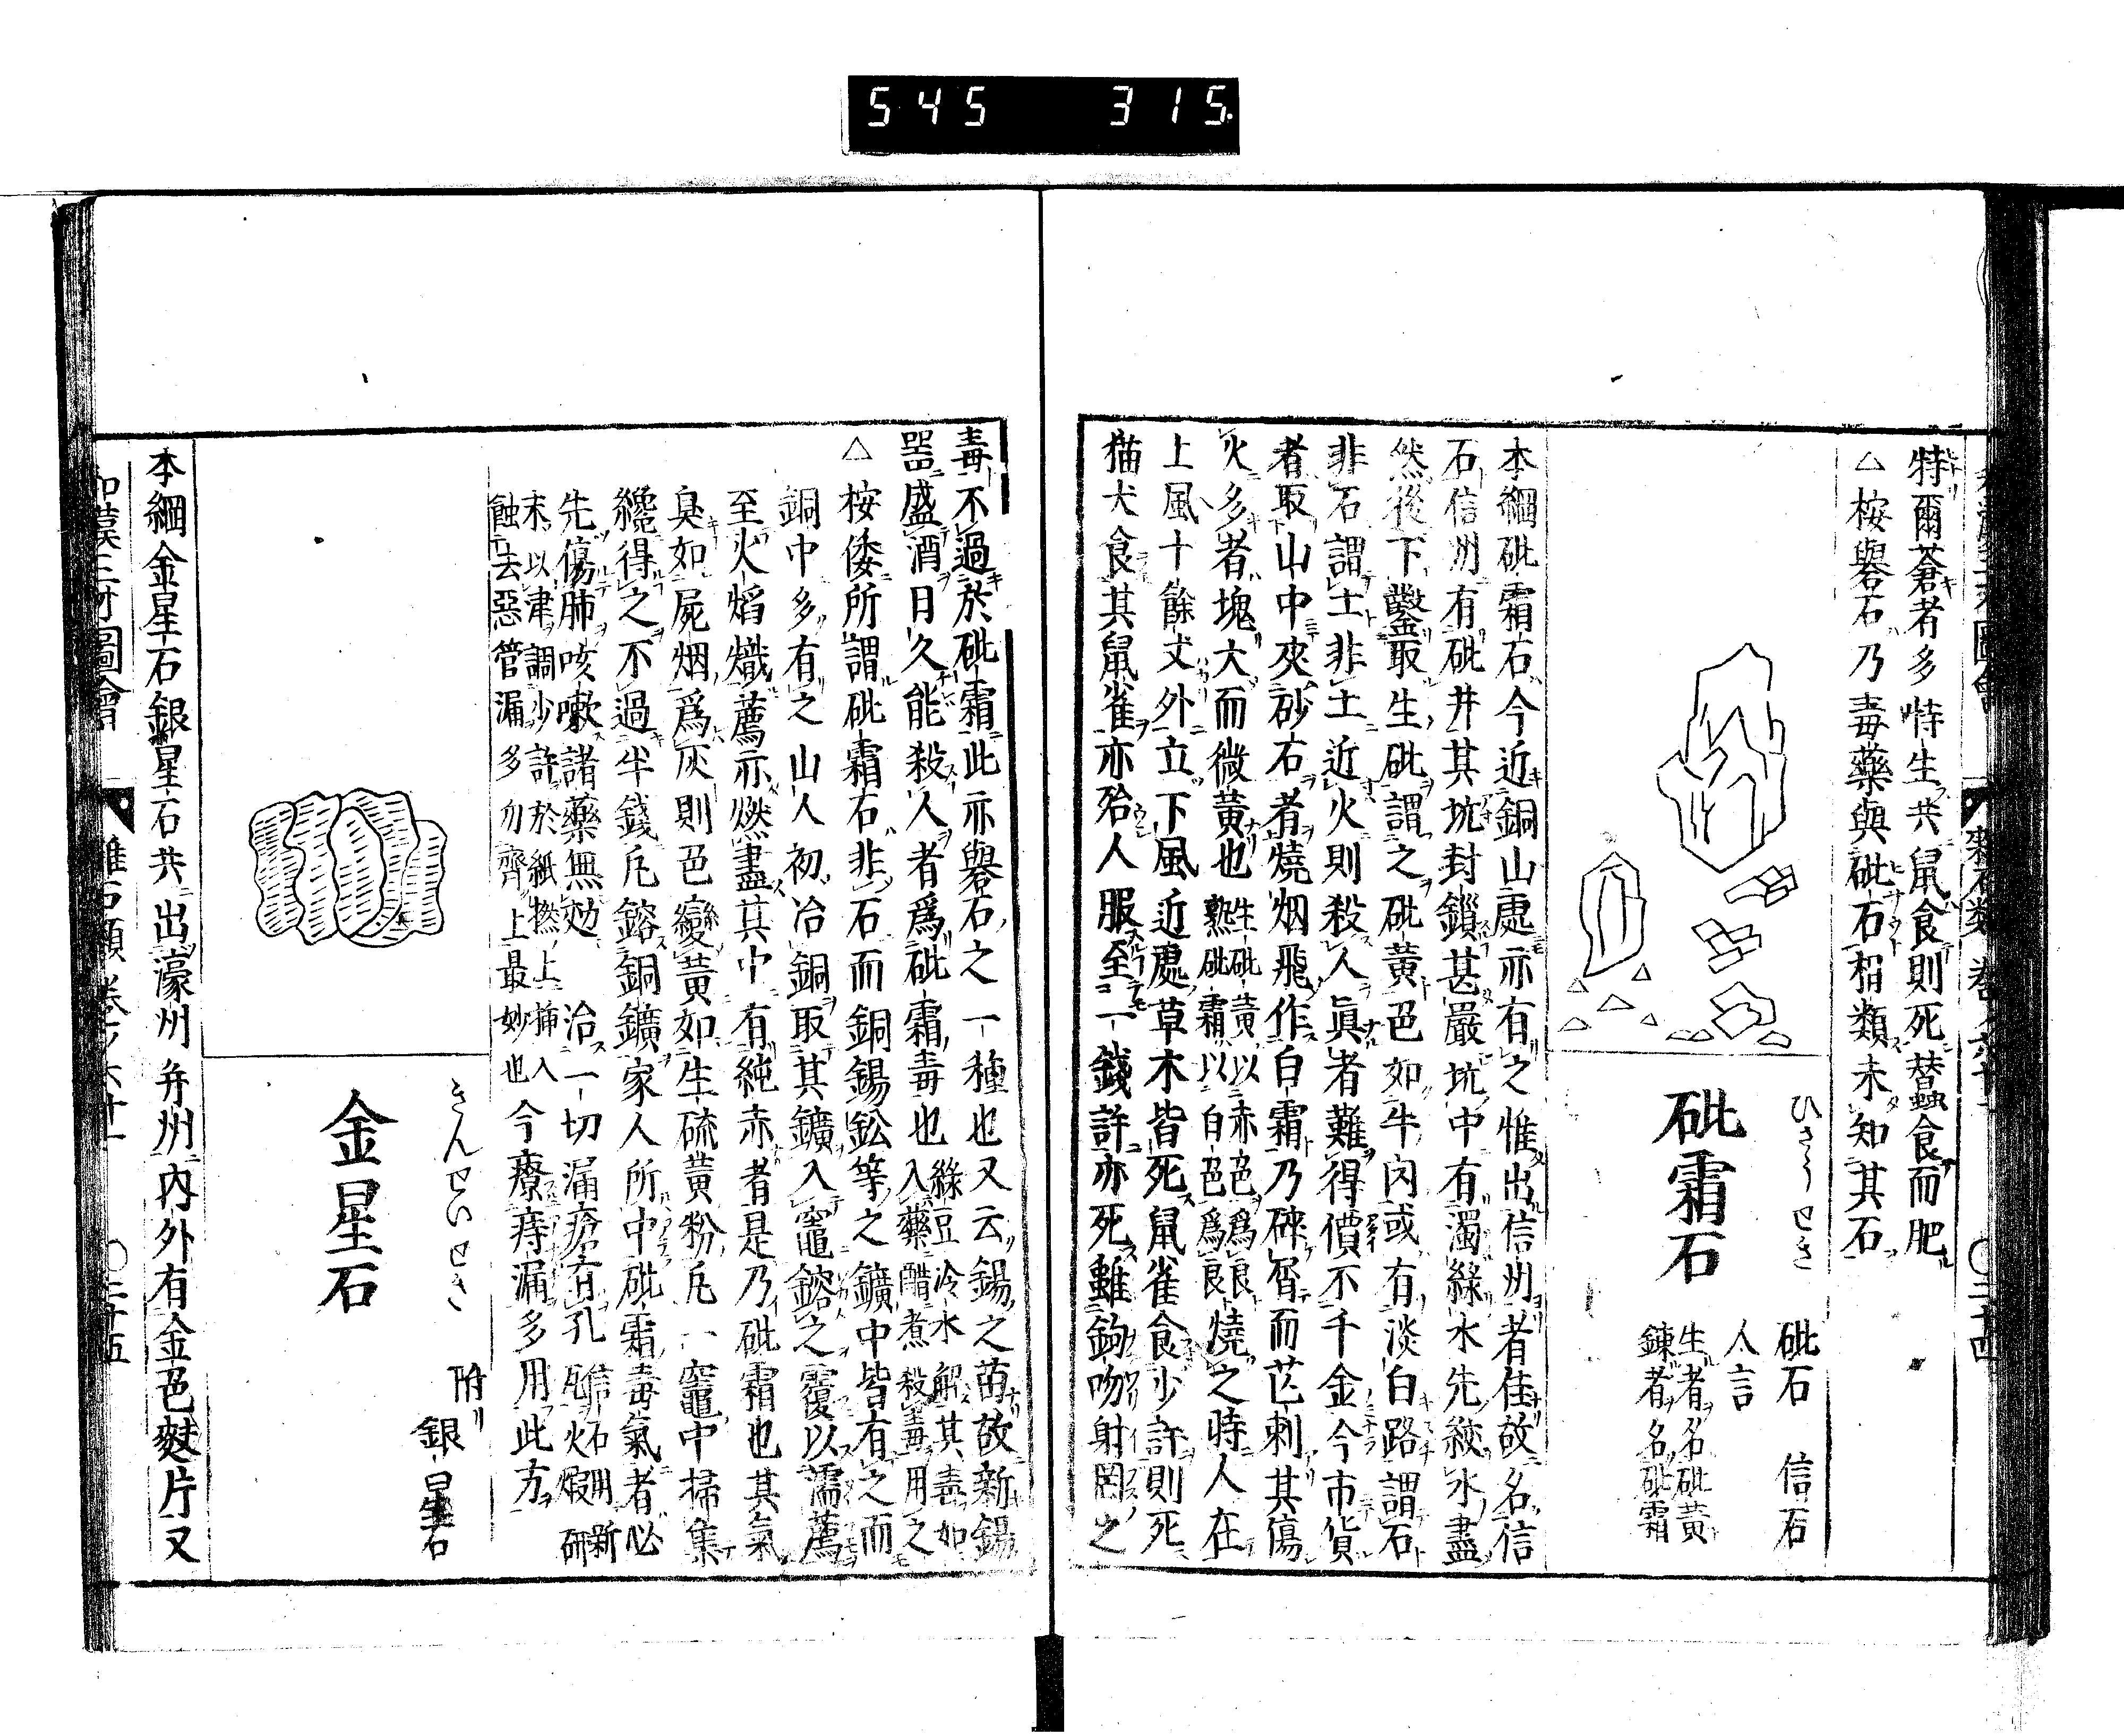 545 315
特爾蒼者多特生共鼠食則死蠶食而肥
△桉礜石乃毒藥與砒石相類未知其石
ひさうせき
砒霜石
砒石 信石
人言
生者名砒黃
錬者名砒霜
本綱砒霜石今近銅山處亦有之惟出信州者佳故名信
石信州有砒井其坑封鎖甚嚴坑中有濁綠水先絞水盡
然後下鑿取生砒謂之砒黃色如牛肉或有淡白路謂石
非石謂土非土近火則殺人眞者難得價不千金今市貨
者取山中夾砂石者燒烟飛作白霜乃碎屑而芒刺其傷
火多者塊大而微黃也生砒黃以赤色爲良熟砒霜以白色爲良燒之時人在
上風十餘丈外立下風近處草木皆死鼠雀食少許則死
猫犬食其鼠雀亦殆人服至一錢許亦死雖鉤吻射罔之
毒不過於砒霜此亦礜石之一種也又云錫之苗故新錫
器盛酒日久能殺人者爲砒霜毒也綠豆冷水解其毒如入藥醋煮殺毒用之
△桉倭所謂砒霜石非石而銅錫鉛等之鑛中皆有之而
銅中多有之山人初冶銅取其鑛入竈鎔之覆以濡薦
至火焰熾薦亦燃盡其中有純赤者是乃砒霜也其氣
臭如屍烟爲灰則色變黃如生硫黃粉凡一竈中掃集
纔得之不過半錢凡鎔銅鑛家人所中砒霜毒氣者必
先傷肺咳嗽諸藥無効 治一切漏瘡有孔信石用新瓦火煆研
末以津調少許於紙撚上揷入
蝕去惡管漏多勿齊上最妙也今療痔漏多用此方
きんせいせき
金星石
附
銀星石
本綱金星石銀星石共出濠州并州內外有金色麩片又
和漢三才圖會 雜石類 卷ノ六十一 〇二十五